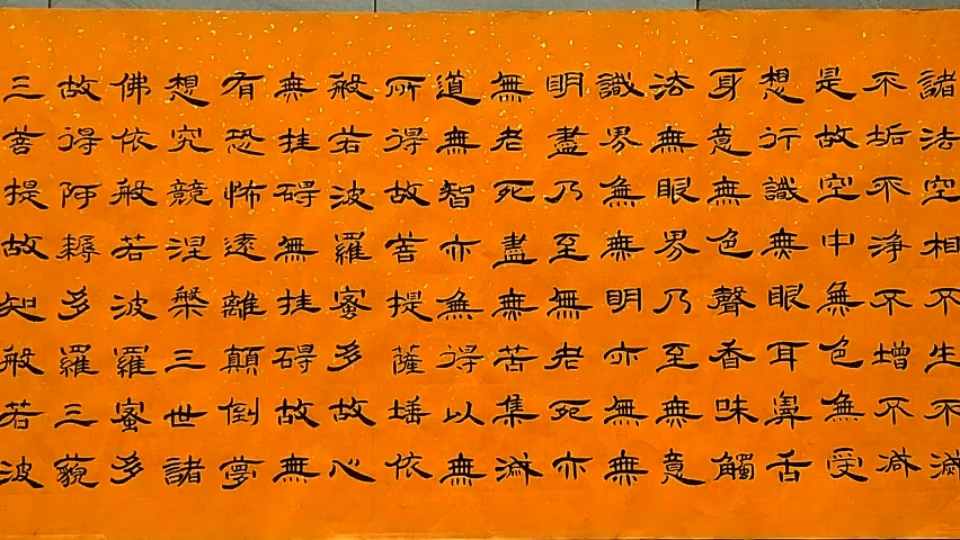 諸法空相不生不滅
不垢不淨不增不減
是故空中無色無受
想行識無眼耳鼻舌
身意無色聲香味觸
法無眼界乃至無意
識界無無明亦無無
明盡乃至無老死亦
無老死盡無苦集滅
道無智亦無得以無
所得故菩提薩埵依
般若波羅蜜多故心
無挂碍無挂碍故無
有恐怖遠離顛倒夢
想究競涅槃三世諸
佛依般若波羅蜜多
故得阿耨多羅三藐
三菩提故知般若波